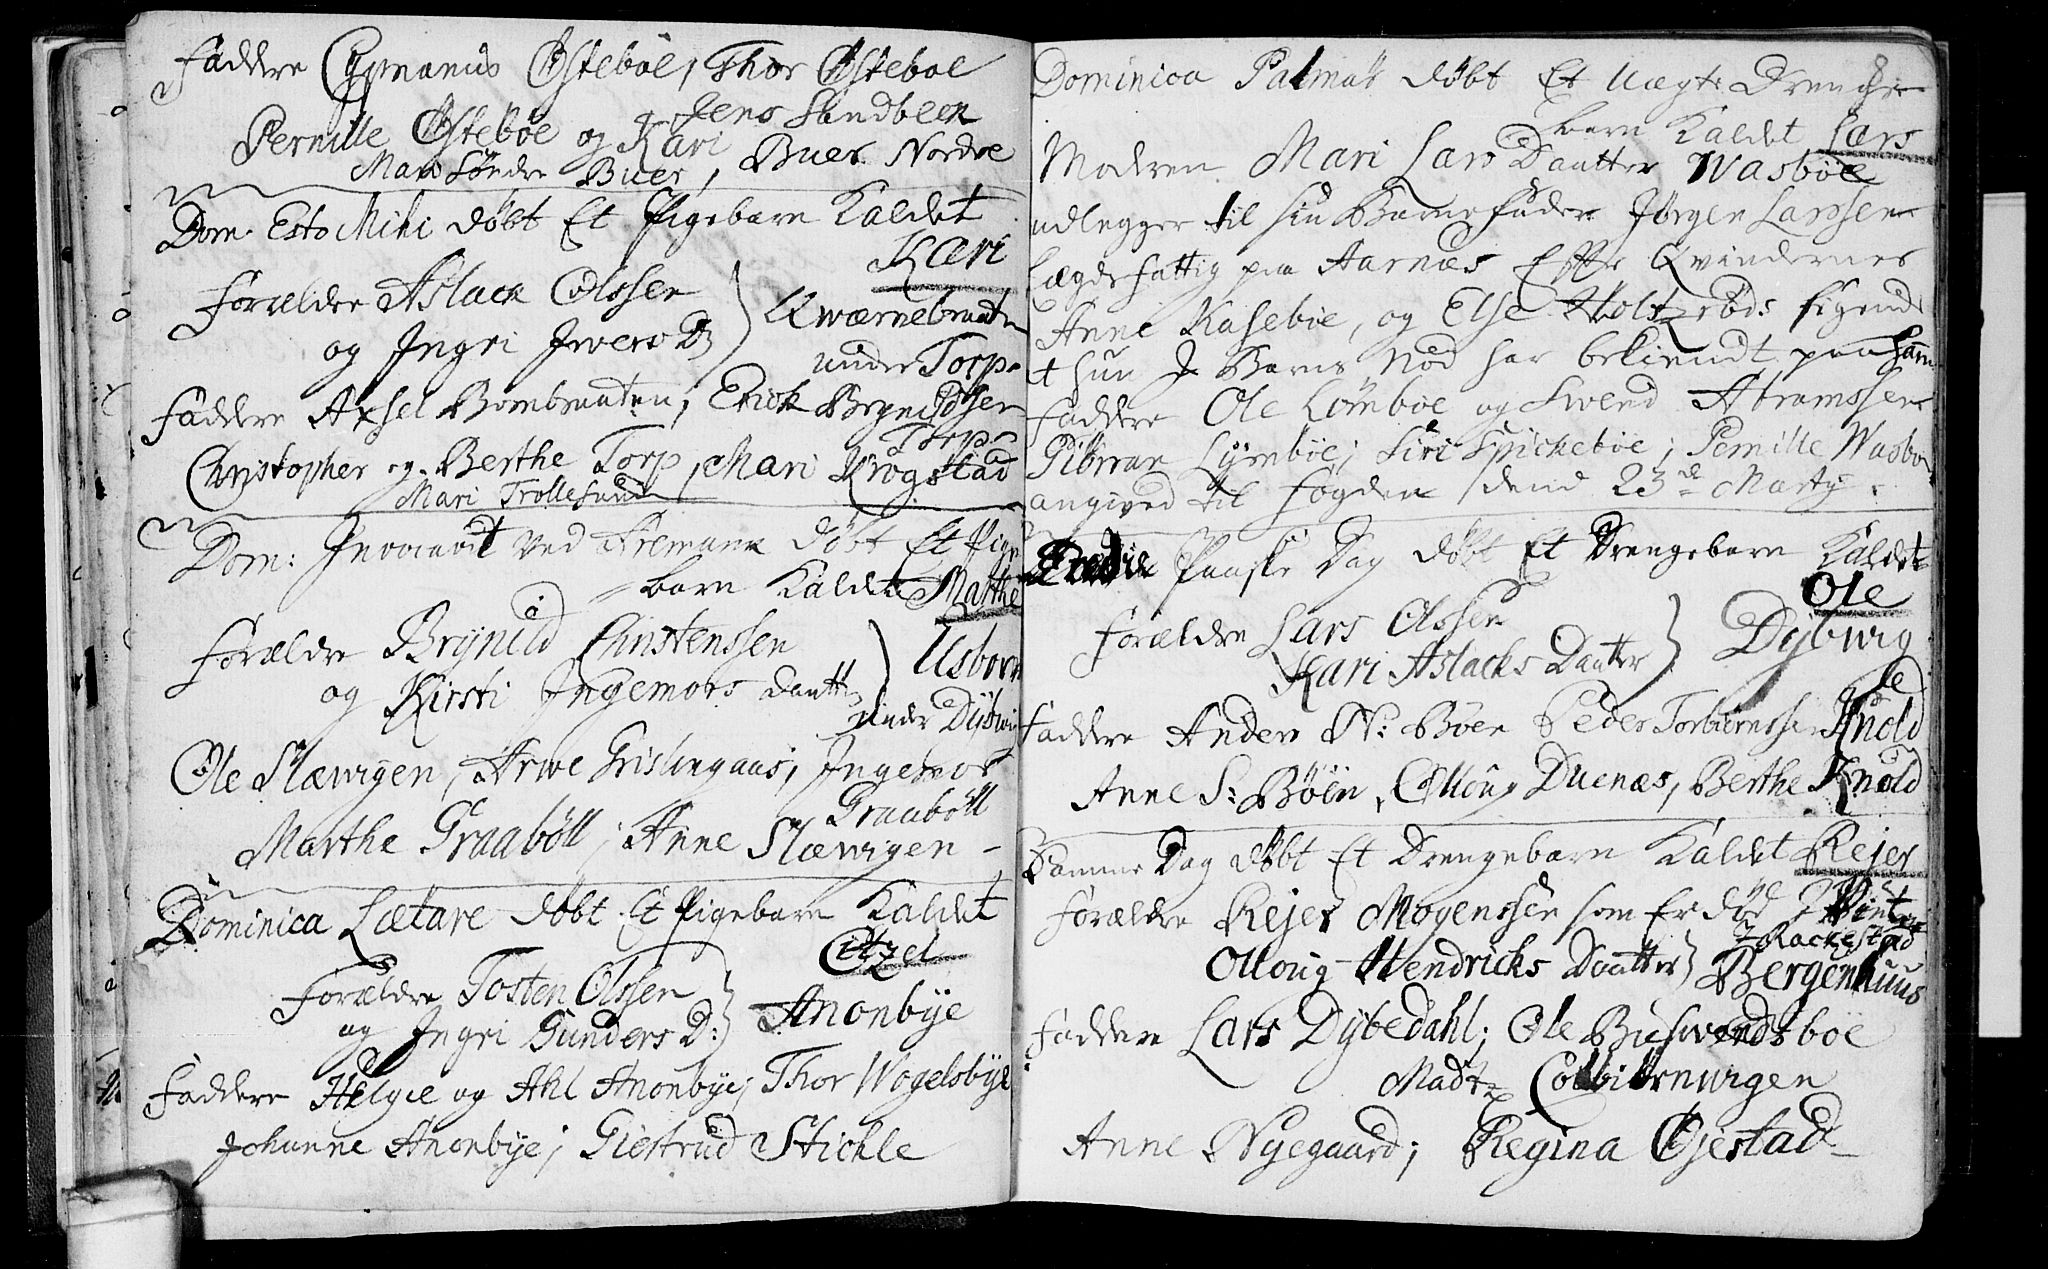 Faddere Cyprianus Østebøe, Thor Østeboe
Jens Sandbeek
Pernille Østebøe og Kari
Mari Søndre Buer, Buer Nordre
Dom. Esto Mihi döbt Et Pigebarn Kaldet
Kari
Forældre Aslack Olssen
og Ingri Iwers D.
Qwærnebraaten
under Torp
Faddere Axsel Bombraaten, Erick Brynildssen
Torp
Christopher og Berthe Torp, Mari Krogstad
Mari Trollesund
Dom: Invocavit ved Fremane döbt Et Pige
barn Kaldet Marthe
Forældre Brynild Christenssen
og Kirsti Ingemors Daatter
under Dybwig
Ole Slæwigen, Arwe Grislingaas, Ingemor
Graaböll
Marthe Graaböll, Anne Slæwigen
Dominica Lætare döbt Et Pigebarn Kaldet
Forældre Tosten Olssen
og Ingri Gunders D:
Anonbÿe
Faddere Helgie og Ahl Anonbÿe, Thor Wogelsbÿe
Johanne Anonbÿe, Giertrud Stichle
Dominica Palmar döbt Et Uægte Drenge
barn Kaldet Lars
Modren Mari Lars Daatter Wasbøe
udlegger til sin Barnefader Jørgen Larssen
Lægdsfattig paa Aarnæs Efter Qvindernes
Anne Kasebøe, og Else Holtzröds sigend
t hun J Barns Nöd har bekiendt paa ham
Faddere Ole Lömboe og Swend Abramssen
Lÿmbøe, Siri Spickebøe, Pernille Wasboe
angived til Fogden dend 23de Marty
Tredie Paaske Dag döbt Et Drengebarn Kaldet
Ole
Forældre Lars Olssen
Kari Aslacks Daatter
Dÿbwig
Faddere Anders N: Böen Peder Torbiörnssen Knold
Anne S: Böen, Olloug Duenæs, Berthe Knold
Samme Dag döbt Et Drengebarn Kaldet Rejer
Forældre Rejer Mogenssen som Er död J Winter
J Rackestad
Olloug Hendricks Daatter Bergenhuus
Faddere Lars Dÿbedahl, Ole Buswendsboe
Madtz Colbiörnwigen
Anne Nyegaard, Regina Gjestad